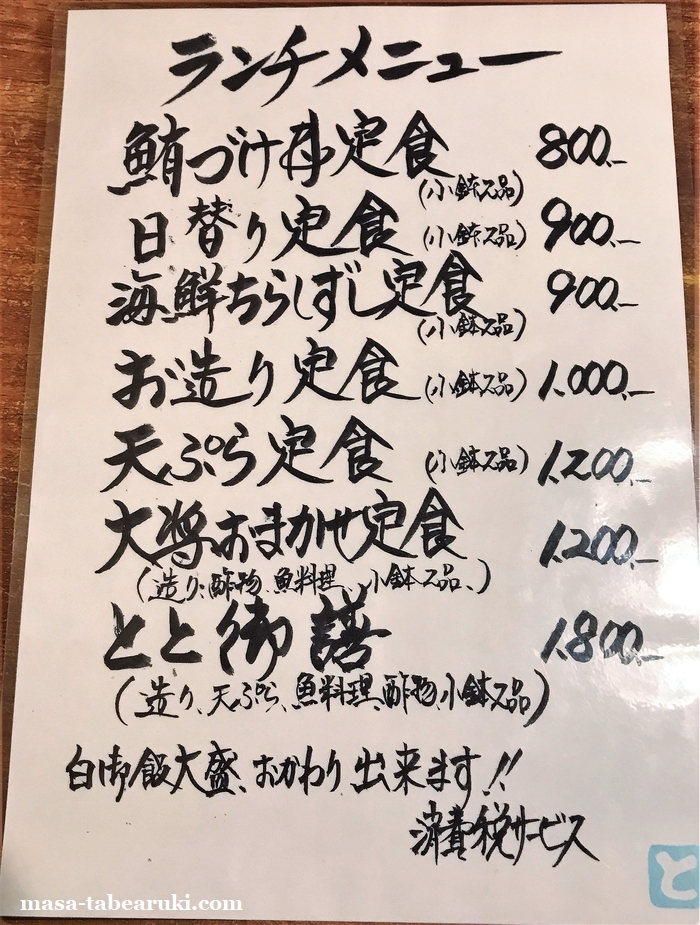 ランチメニュー
鮪づけ丼定食 (小鉢2品) 800.-
日替り定食 (小鉢2品) 900.-
海鮮ちらしずし定食 (小鉢2品) 900.-
お造り定食 (小鉢2品) 1.000.-
天ぷら定食 (小鉢2品) 1.200.-
大将おまかせ定食 1.200.-
(造り、酢物、魚料理、小鉢2品、)
とと御膳 1.800.-
(造り、天ぷら、魚料理、酢物、小鉢2品)
白御飯大盛、おかわり出来ます!!
消費税サービス
と
masa-tabearuki.com